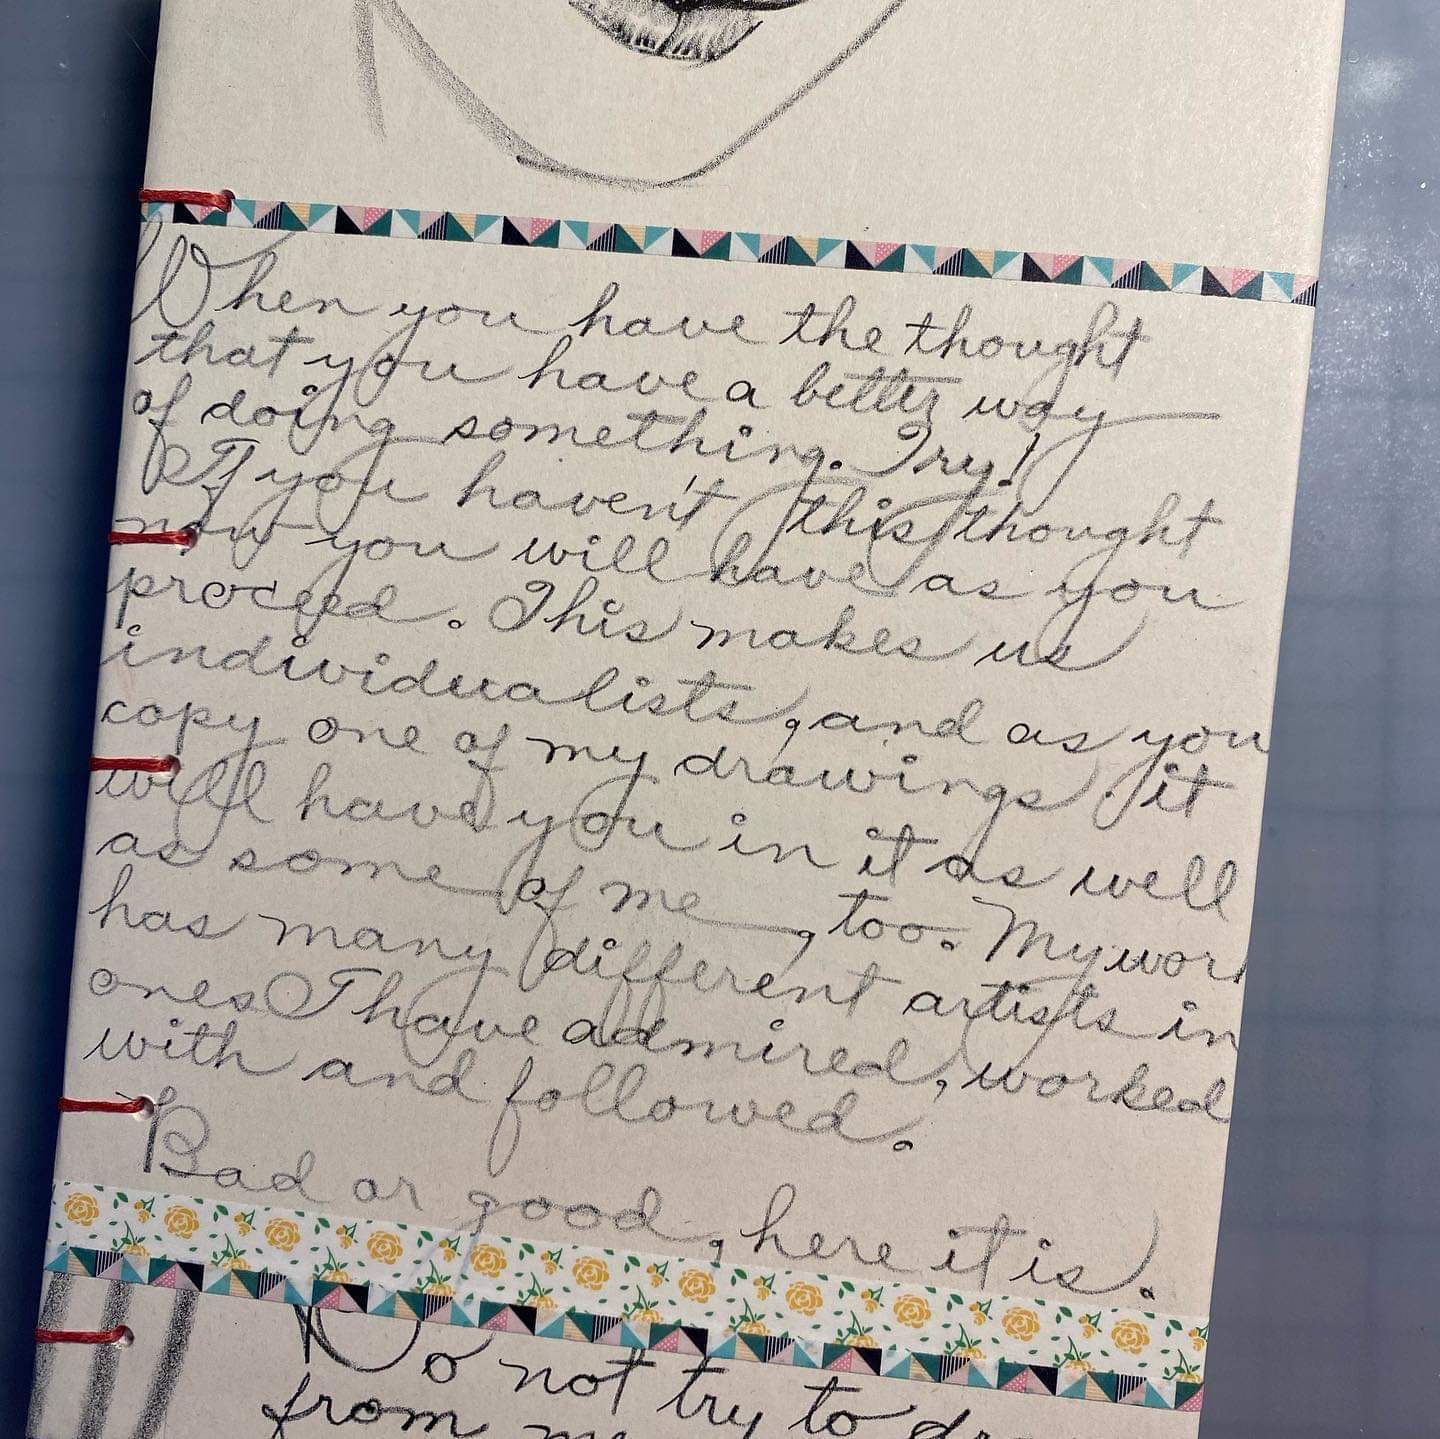 When you have the thought
that you have a better way
of doing something. Try!
If you haven't this thought
now you will have as you
proceed. This makes us
individualists, and as you
copy one of my drawings it
will have you in it as well
as some of me, too. My work
has many different artists in
ones I have admired, worked
with and followed.
Bad or good, here it is.
Do not try to
from